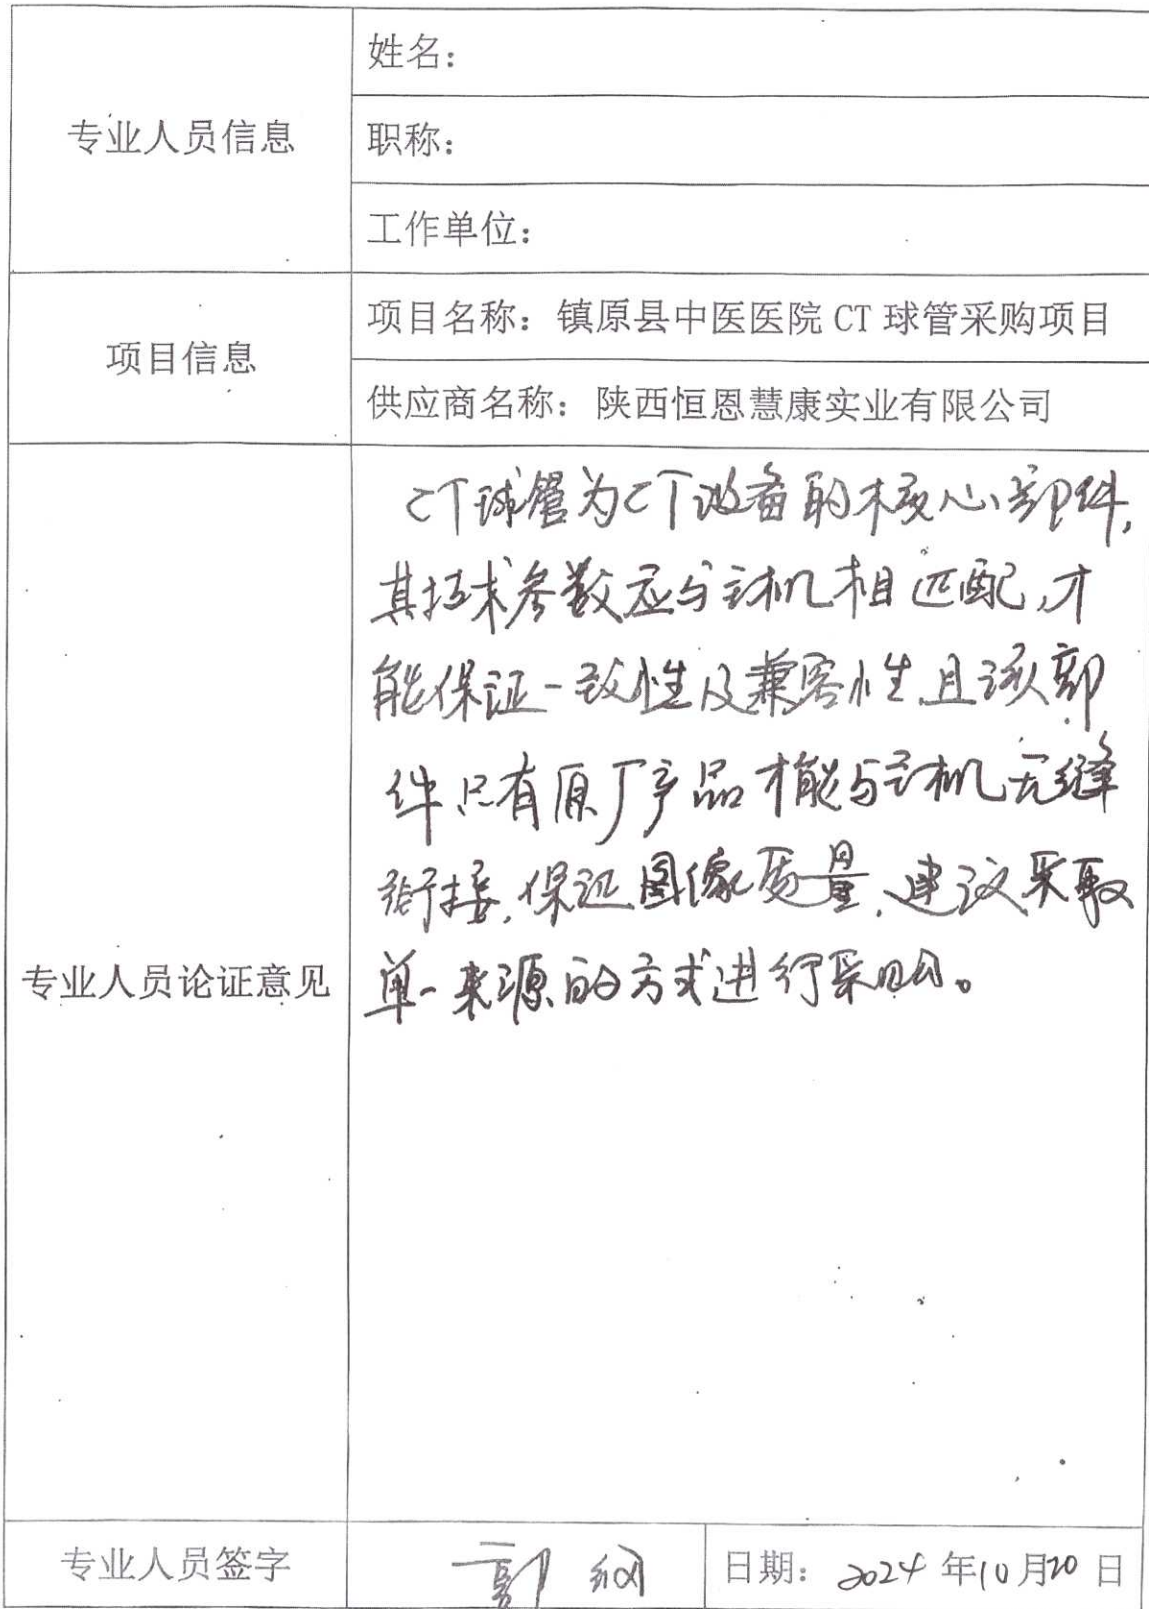 专业人员信息
姓名：
职称：
工作单位：
项目信息
项目名称：镇原县中医医院 CT 球管采购项目
供应商名称：陕西恒恩慧康实业有限公司
专业人员论证意见
CT球管为CT设备的核心部件,
其技术参数应与主机相匹配,才
能保证一致性及兼容性,且该部
件只有原厂产品才能与主机无缝
衔接,保证图像质量,建议采取
单一来源的方式进行采购。
专业人员签字
郭
日期：2024 年10月20 日